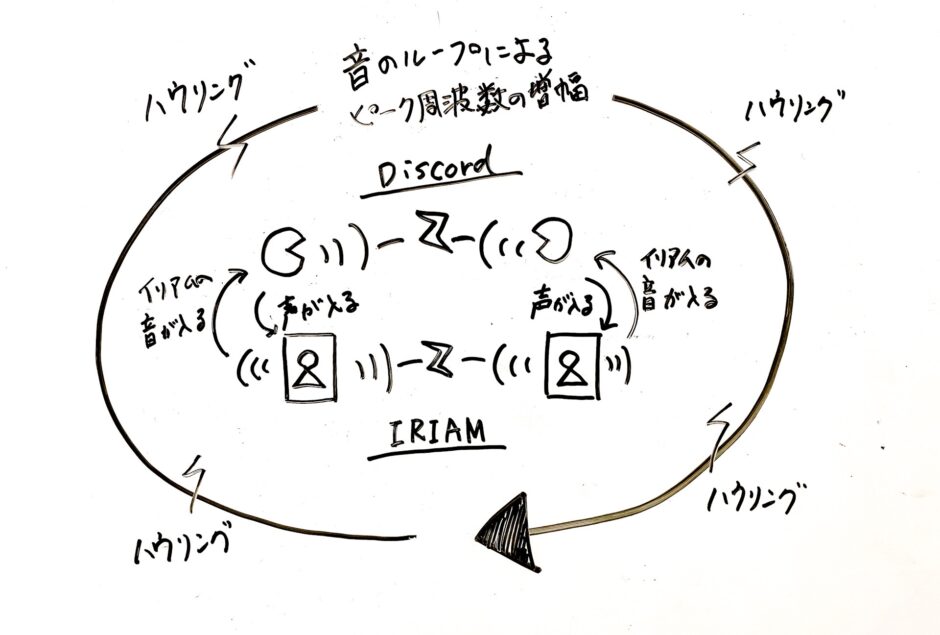 音のループによる
ピーク周波数の増幅
ハウリング
ハウリング
Discord
イリアムの
音が入る
声が入る
声が入る
イリアムの
音が入る
IRIAM
ハウリング
ハウリング